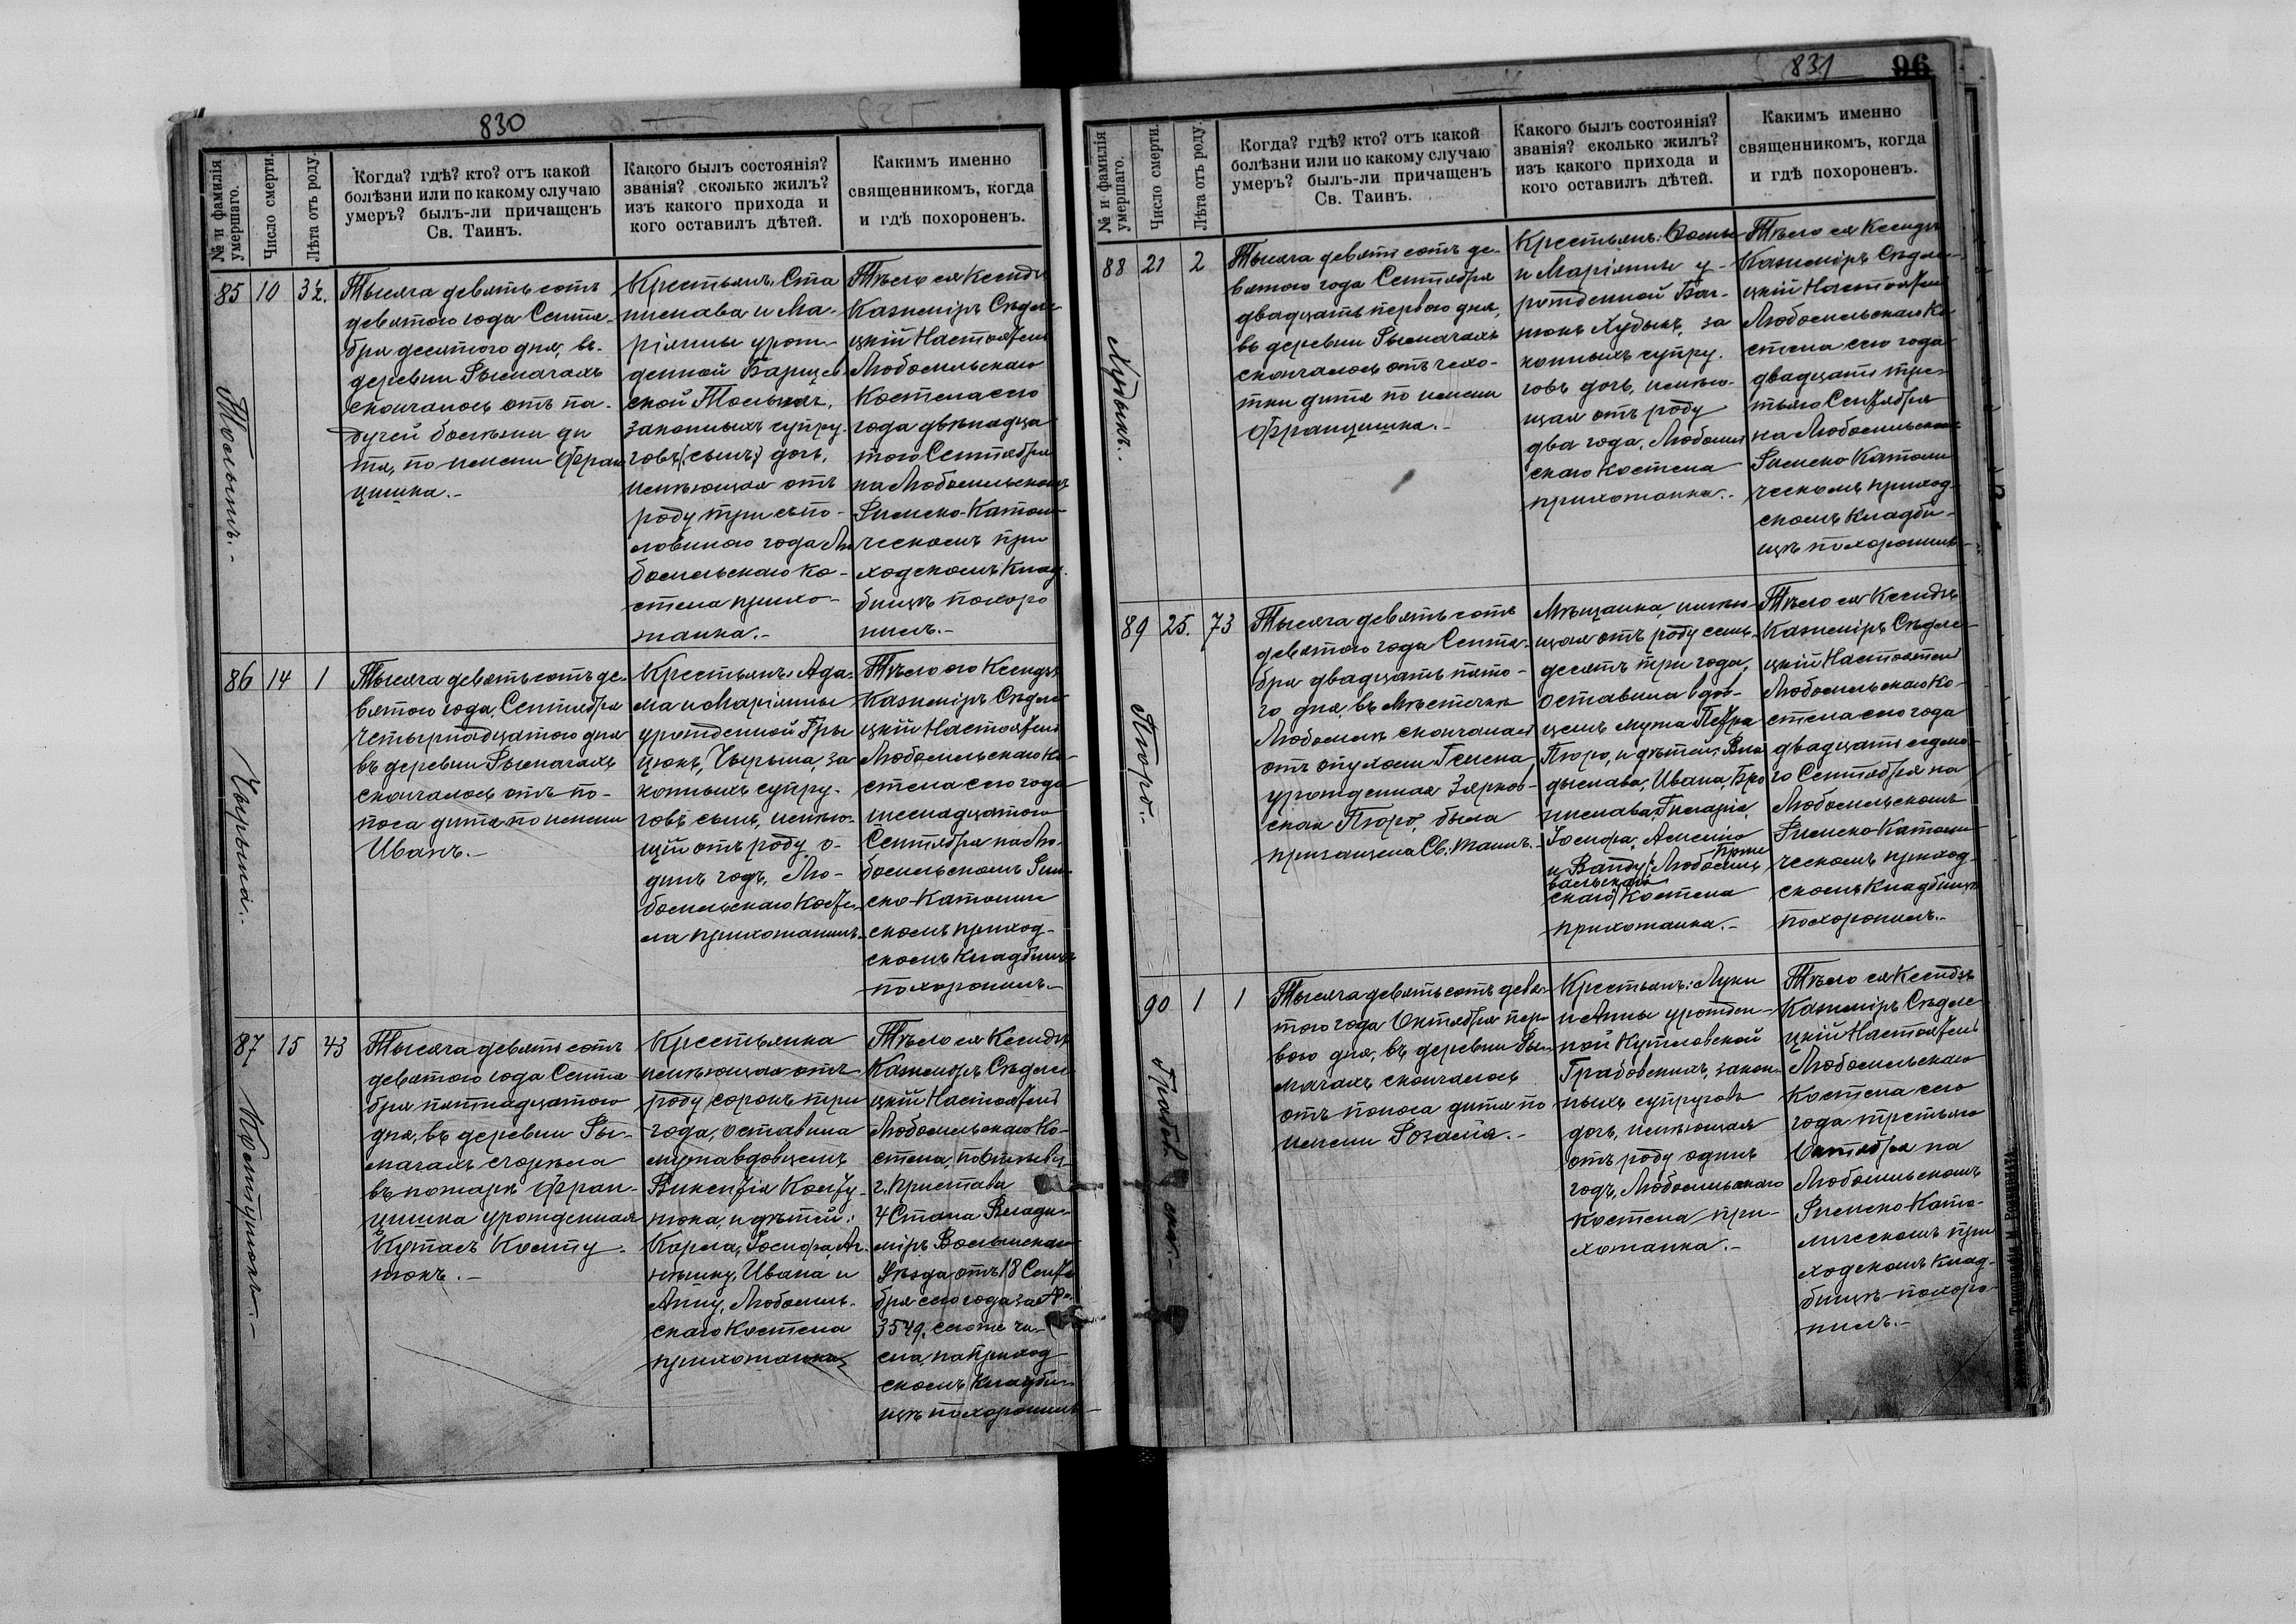 830
№ и фамилія умершаго.
Число смерти.
Лѣта отъ роду.
Когда? гдѣ? кто? отъ какой
болѣзни или по какому случаю
умеръ? былъ-ли причащенъ
Св. Таинъ.
Какого былъ состоянія?
званія? сколько жилъ?
изъ какого прихода и
кого оставилъ дѣтей.
Каким именно
священникомъ, когда
и гдѣ похороненъ.
85
10
3½.
Тысяча девятьсотъ
девятого года Сентя-
бря десятого дня, въ
деревни Рымачахъ
скончалось отъ па-
дучей болѣзни ди
тя, по имени Фран
цишка.-
Крестьянъ: Ста
нислава и Ма-
ріянны урож-
денной
законныхъ супру-
говъ (сынъ) дочь,
имѣющая отъ
роду три съ по-
ловиною года Лю
бомльскаго Ко-
стела прихо-
жанка.-
Тѣло ея Ксендзъ
Казиміръ Сѣдле
цкій Настоятель
Любомльскаго
Костела сего
года двѣнадца
того Сентября
на Любомльскомъ
Римско-Католи-
ческомъ при
ходскомъ Клад-
бищѣ похоро
нилъ.-
86
14
1
Чырыпа.-
Тысяча девятьсотъ де-
вятого года, Сентября
четырнадцатого дня
въ деревни Рымачахъ
скончалось отъ по-
носа дитя по имени
Иванъ.-
Крестьянъ: Ада-
ма и Маріянны
урожденной Гры
цюкъ, Чырыпа, за
конныхъ супру-
говъ сынъ, имѣю-
щій отъ роду о-
динъ годъ, Лю-
бомльскаго Косте-
ла прихожанинъ.-
Тѣло его Ксендзъ
Казиміръ Сѣдле
цкій Настоятель
Любомльскаго Ко-
стела сего года
шеснадцатого
Сентября на Лю-
бомльскомъ Рим-
ско-Католиче
скомъ приход-
скомъ Кладбищѣ
похоронилъ.-
87
15
43
Контунюкъ.-
Тысяча девятьсотъ
девятого года Сентя
бря пятнадцатого
дня, въ деревни Ры-
мачахъ сгорѣла
въ пожарѣ Фран-
цишка урожденная
Крестьянка
имѣющая отъ
роду сорокъ три
года, оставила
мужа вдовцемъ
Викентія
и дѣтей:
Карла, Іосифа, Аг-
нѣшку, Ивана и
Анну, Любомль-
скаго Костела
прихожанка
Тѣло ея Ксендзъ
Казиміръ Сѣдле
цкій Настоятель
Любомльскаго Ко-
стела,
г. Пристава
4 Стана Влади-
міръ Волынскаго
Уѣзда отъ 18 Сентя
бря сего года за №
3549, сего же чи-
сла на приход-
скомъ кладби-
щѣ похоронилъ-
831
96
№ и фамилія умершаго.
Число смерти.
Лѣта отъ роду.
Когда? гдѣ? кто? отъ какой
болѣзни или по какому случаю
умеръ? былъ-ли причащенъ
Св. Таинъ.
Какого былъ состоянія?
званія? сколько жилъ?
изъ какого прихода и
кого оставилъ дѣтей.
Каким именно
священникомъ, когда
и гдѣ похороненъ.
88
21
2
Тысяча девятьсотъ де-
вятого года Сентября
двадцать первого дня,
въ деревни Рымачахъ
скончалось отъ чахо-
тки дитя по имени
Францишка.-
Крестьянъ:
и Маріянны у-
рожденной
за
конныхъ супру-
говъ дочь, имѣю-
щая отъ роду
два года, Любомль
скаго Костела
прихожанка.-
Тѣло ея Ксендзъ
Казиміръ Сѣдле-
цкій Настоятель
Любомльскаго Ко-
стела сего года
двадцать тре-
тьяго Сентября
на Любомльскомъ
Римско Католи
ческомъ приход-
скомъ Кладби-
щѣ похоронилъ-
89
25.
73
Пюро.-
Тысяча девятьсотъ
девятого года Сентя-
бря двадцать пято-
го дня, въ Мѣстечкѣ
Любомлѣ скончалась
отъ опухоли
урожденная
Пюро, была
причащена Св. Таинъ.-
Мѣщанка, имѣю-
щая отъ роду семь-
десятъ три года,
оставила вдов-
цемъ мужа Петра
Пюро, и дѣтей: Вла
дыслава, Ивана, Бро
нислава,
Іосифа,
и Ванду
скаго Костела
прихожанка.-
Тѣло ея Ксендзъ
Казиміръ Сѣдле-
цкій Настоятель
Любомльскаго Ко-
стела сего года
двадцать седмо-
го Сентября на
Любомльскомъ
Римско Католи
ческомъ приход
скомъ Кладбищѣ
похоронилъ.-
90
1
1
Тысяча девятьсотъ девя-
того года Октября пер-
вого дня, въ деревни Ры-
мачахъ скончалось
отъ поноса дитя по
имени Розалія.-
Крестьянъ: Луки
и Анны урожден-
ной Кутловской
Грабовскихъ, закон-
ныхъ супруговъ
дочь, имѣющая
отъ роду одинъ
годъ, Любомльскаго
Костела при-
хожанка.-
Тѣло ея Ксендзъ
Казиміръ Сѣдле
цкій Настоятель
Любомльскаго
Костела сего
года третьяго
Октября на
Любомльскомъ
Римско-Като-
лическомъ при
ходскомъ Клад-
бищѣ похоро-
нилъ.-